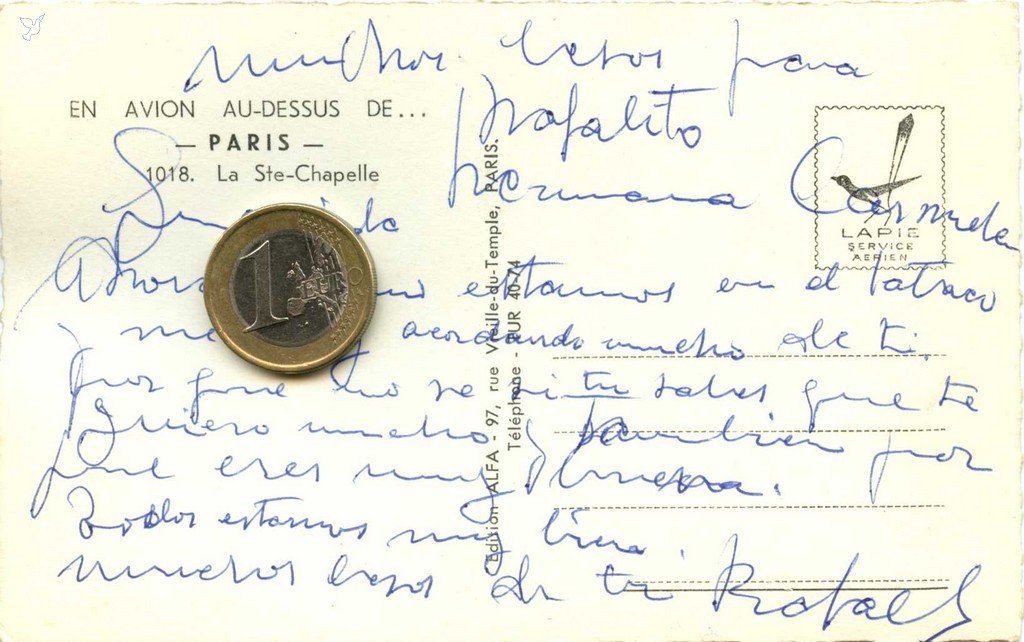 muchos besos para
Rafalito
hermana Carmela
EN AVION AU-DESSUS DE...
— PARIS —
1018. La Ste-Chapelle
LAPIE
SERVICE
AERIEN
Edition ALFA - 97, rue Vieille-du-Temple, PARIS.
Téléphone - TUR 40-74
1
Ahora estamos en el
y me acordando mucho de ti.
por que no se si tu sabes que te
quiero mucho y tambien por
que eres muy buena.
todos estamos muy bien.
muchos besos de tu Rafael